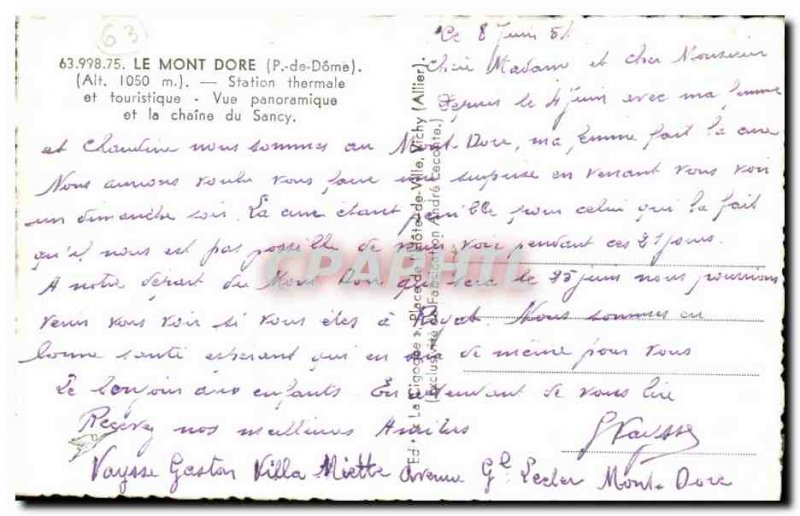 63
63.998.75. LE MONT DORE (P.-de-Dôme).
(Alt. 1050 m.). — Station thermale
et touristique - Vue panoramique
et la chaîne du Sancy.
Ed. « La Cigogne », Place de l'Hôtel-de-Ville, Vichy (Allier).
(Exclusivité de Fabrication André Leconte.)
Ce 8 juin 51
Chère Madame et cher Monsieur
Depuis le 4 juin avec ma femme
et Claudine nous sommes au Mont-Dore, ma femme fait la cure
Nous aurions voulu vous faire une surprise en venant vous voir
un dimanche soir. La cure étant pénible pour celui qui la fait
qu'il nous est pas possible de vous voir pendant ces 21 jours.
A notre départ du Mont Dore qui sera le 25 juin nous pourrions
venir vous voir si vous êtes à Royat. Nous sommes en
bonne santé espérant qu'il en soit de même pour vous
Le bonjour aux enfants. En attendant de vous lire
Recevez nos meilleures Amitiés
GVaysse
Vaysse Gaston Villa Miette Avenue Gl Lecler Mont-Dore
CPAPHIL